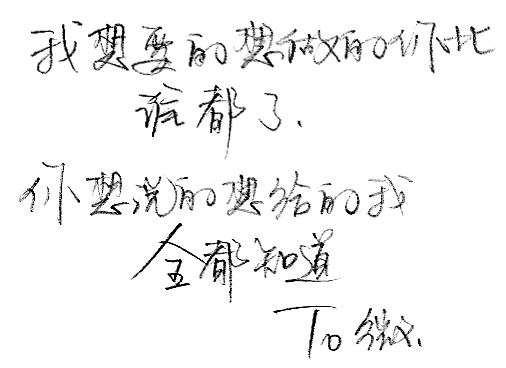 我想要的想做的你比
谁都了.
你想说的想给的我
全都知道
To 微.